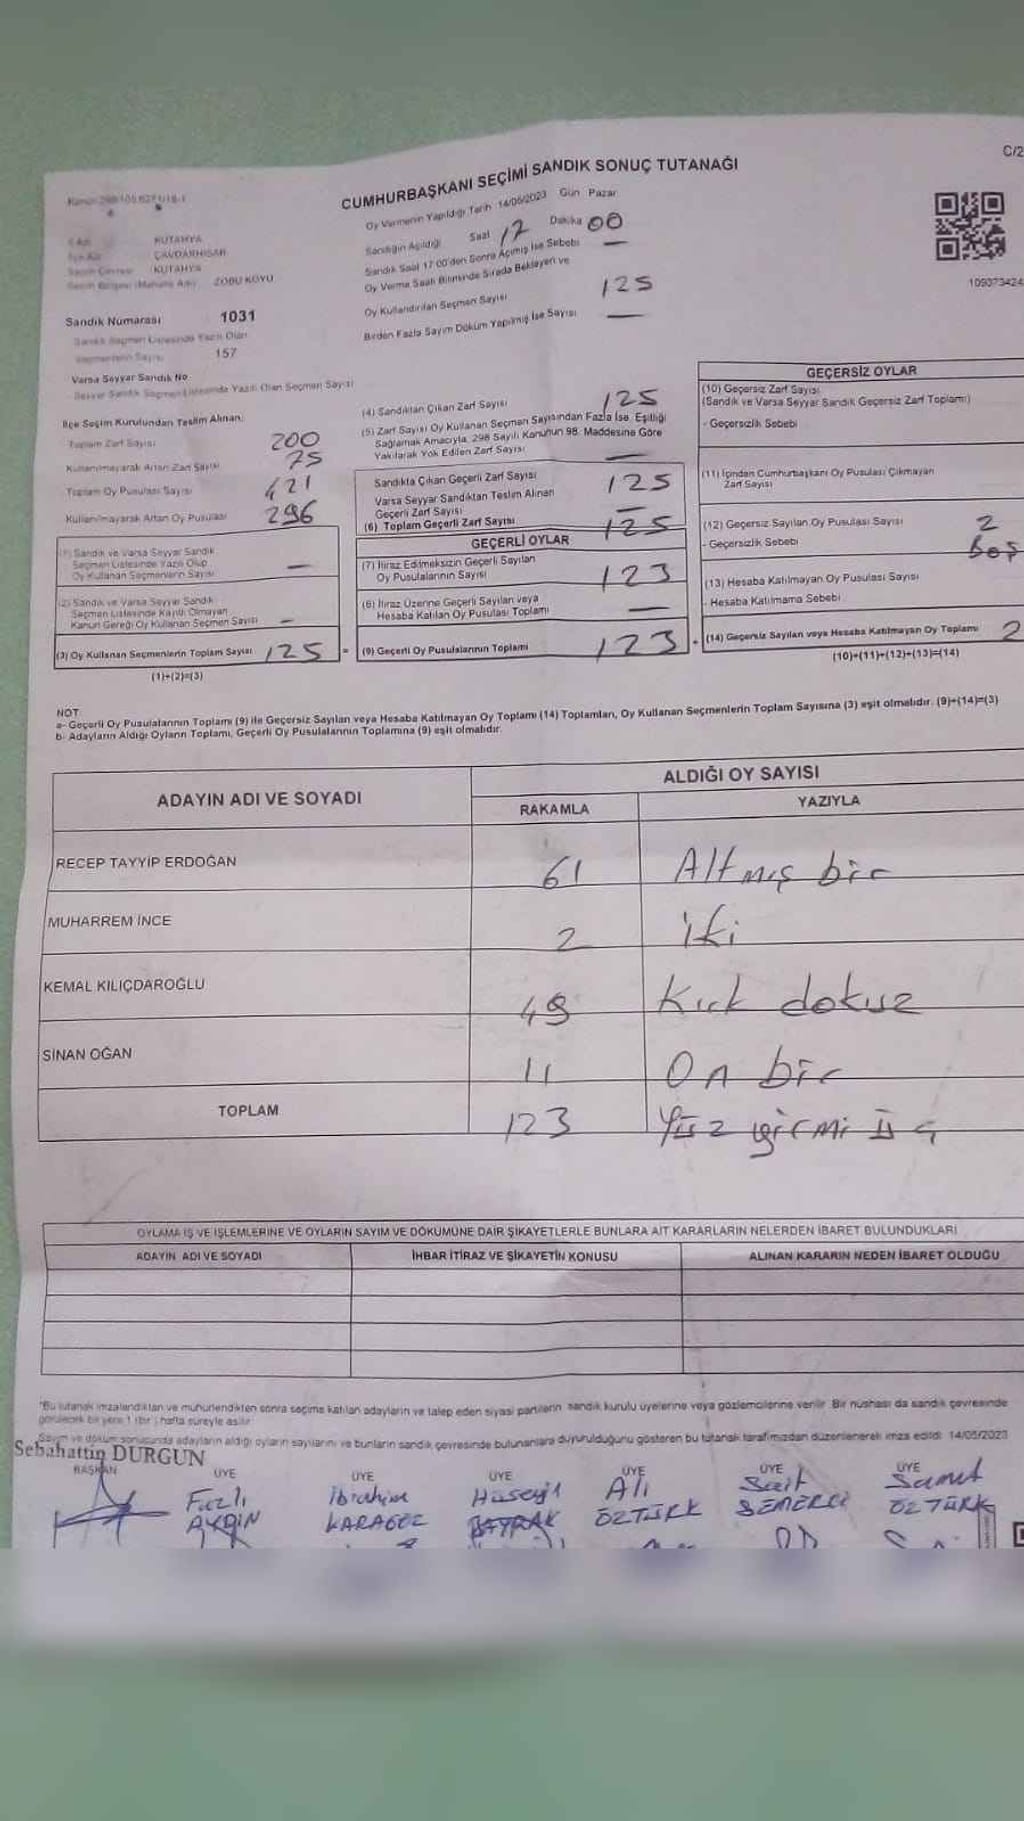 C/2
CUMHURBAŞKANI SEÇİMİ SANDIK SONUÇ TUTANAĞI
Oy Vermenin Yapıldığı Tarih 14/05/2023 Gün Pazar
Sandığın Açıldığı Saat 17 Dakika 00
Sandık Saat 17:00'den Sonra Açılmış İse Sebebi —
Oy Verme Saati Bitiminde Sırada Bekleyen ve
Oy Kullandırılan Seçmen Sayısı 125
Birden Fazla Sayım Döküm Yapılmış İse Sayısı —
109373424
KÜTAHYA
ÇAVDARHİSAR
KÜTAHYA
ZOBU KÖYÜ
Sandık Numarası 1031
Sandık Seçmen Listesinde Yazılı Olan
Seçmenlerin Sayısı 157
Varsa Seyyar Sandık No
Seyyar Sandık Seçmen Listesinde Yazılı Olan Seçmen Sayısı
İlçe Seçim Kurulundan Teslim Alınan:
Toplam Zarf Sayısı 200
Kullanılmayarak Artan Zarf Sayısı 75
Toplam Oy Pusulası Sayısı 421
Kullanılmayarak Artan Oy Pusulası 296
(1) Sandık ve Varsa Seyyar Sandık
Seçmen Listesinde Yazılı Olup
Oy Kullanan Seçmenlerin Sayısı —
(2) Sandık ve Varsa Seyyar Sandık
Seçmen Listesinde Kayıtlı Olmayan
Kanun Gereği Oy Kullanan Seçmen Sayısı —
(3) Oy Kullanan Seçmenlerin Toplam Sayısı 125 =
(1)+(2)=(3)
(4) Sandıktan Çıkan Zarf Sayısı 125
(5) Zarf Sayısı Oy Kullanan Seçmen Sayısından Fazla İse, Eşitliği
Sağlamak Amacıyla, 298 Sayılı Kanunun 98. Maddesine Göre
Yakılarak Yok Edilen Zarf Sayısı —
Sandıkta Çıkan Geçerli Zarf Sayısı 125
Varsa Seyyar Sandıktan Teslim Alınan
Geçerli Zarf Sayısı —
(6) Toplam Geçerli Zarf Sayısı 125
GEÇERLİ OYLAR
(7) İtiraz Edilmeksizin Geçerli Sayılan
Oy Pusulalarının Sayısı 123
(8) İtiraz Üzerine Geçerli Sayılan veya
Hesaba Katılan Oy Pusulası Toplamı —
(9) Geçerli Oy Pusulalarının Toplamı 123 +
GEÇERSİZ OYLAR
(10) Geçersiz Zarf Sayısı
(Sandık ve Varsa Seyyar Sandık Geçersiz Zarf Toplamı)
- Geçersizlik Sebebi
(11) İçinden Cumhurbaşkanı Oy Pusulası Çıkmayan
Zarf Sayısı
(12) Geçersiz Sayılan Oy Pusulası Sayısı 2
- Geçersizlik Sebebi Boş
(13) Hesaba Katılmayan Oy Pusulası Sayısı
- Hesaba Katılmama Sebebi
(14) Geçersiz Sayılan veya Hesaba Katılmayan Oy Toplamı 2
(10)+(11)+(12)+(13)=(14)
NOT:
a- Geçerli Oy Pusulalarının Toplamı (9) ile Geçersiz Sayılan veya Hesaba Katılmayan Oy Toplamı (14) Toplamları, Oy Kullanan Seçmenlerin Toplam Sayısına (3) eşit olmalıdır. (9)+(14)=(3)
b- Adayların Aldığı Oyların Toplamı, Geçerli Oy Pusulalarının Toplamına (9) eşit olmalıdır.
ADAYIN ADI VE SOYADI ALDIĞI OY SAYISI
RAKAMLA YAZIYLA
RECEP TAYYİP ERDOĞAN 61 Altmış bir
MUHARREM İNCE 2 iki
KEMAL KILIÇDAROĞLU 49 Kırk dokuz
SİNAN OĞAN 11 On bir
TOPLAM 123 Yüz yirmi üç
OYLAMA İŞ VE İŞLEMLERİNE VE OYLARIN SAYIM VE DÖKÜMÜNE DAİR ŞİKAYETLERLE BUNLARA AİT KARARLARIN NELERDEN İBARET BULUNDUKLARI
ADAYIN ADI VE SOYADI İHBAR İTİRAZ VE ŞİKAYETİN KONUSU ALINAN KARARIN NEDEN İBARET OLDUĞU
"Bu tutanak imzalandıktan ve mühürlendikten sonra seçime katılan adayların ve talep eden siyasi partilerin sandık kurulu üyelerine veya gözlemcilerine verilir. Bir nüshası da sandık çevresinde
görülecek bir yere 1 (bir) hafta süreyle asılır.
Sayım ve döküm sonucunda adayların aldığı oyların sayılarını ve bunların sandık çevresinde bulunanlara duyurulduğunu gösteren bu tutanak tarafımızdan düzenlenerek imza edildi. 14/05/2023
Sebahattin DURGUN
BAŞKAN ÜYE ÜYE ÜYE ÜYE ÜYE ÜYE
Fazlı İbrahim Hüseyin Ali Sait Samet
AYDIN KARAGÖZ BAYRAK ÖZTÜRK SEMERCİ ÖZTÜRK